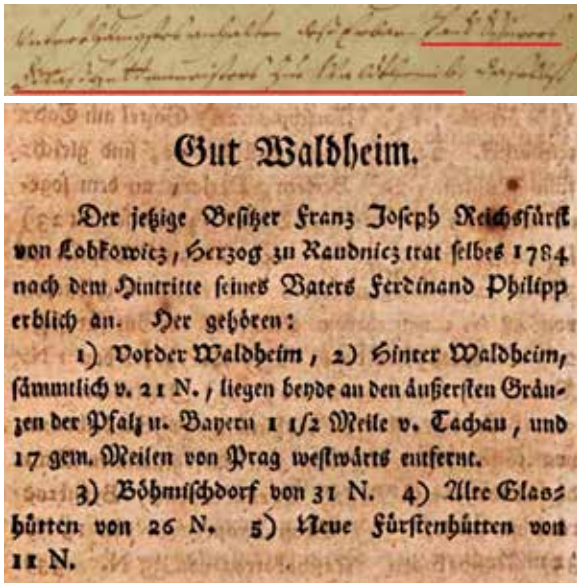 Gut Waldheim.
Der jetzige Besitzer Franz Joseph Reichsfürst
von Lobkowicz, Herzog zu Raudnicz trat selbes 1784
nach dem Hintritte seines Vaters Ferdinand Philipp
erblich an. Her gehören:
1) Vorder Waldheim, 2) Hinter Waldheim,
sämmtlich v. 21 N., liegen beyde an den äußersten Grän-
zen der Pfalz u. Bayern 1 1/2 Meile v. Tachau, und
17 gem. Meilen von Prag westwärts entfernt.
3) Böhmischdorf von 31 N. 4) Alte Glas-
hütten von 26 N. 5) Neue Fürstenhütten von
11 N.